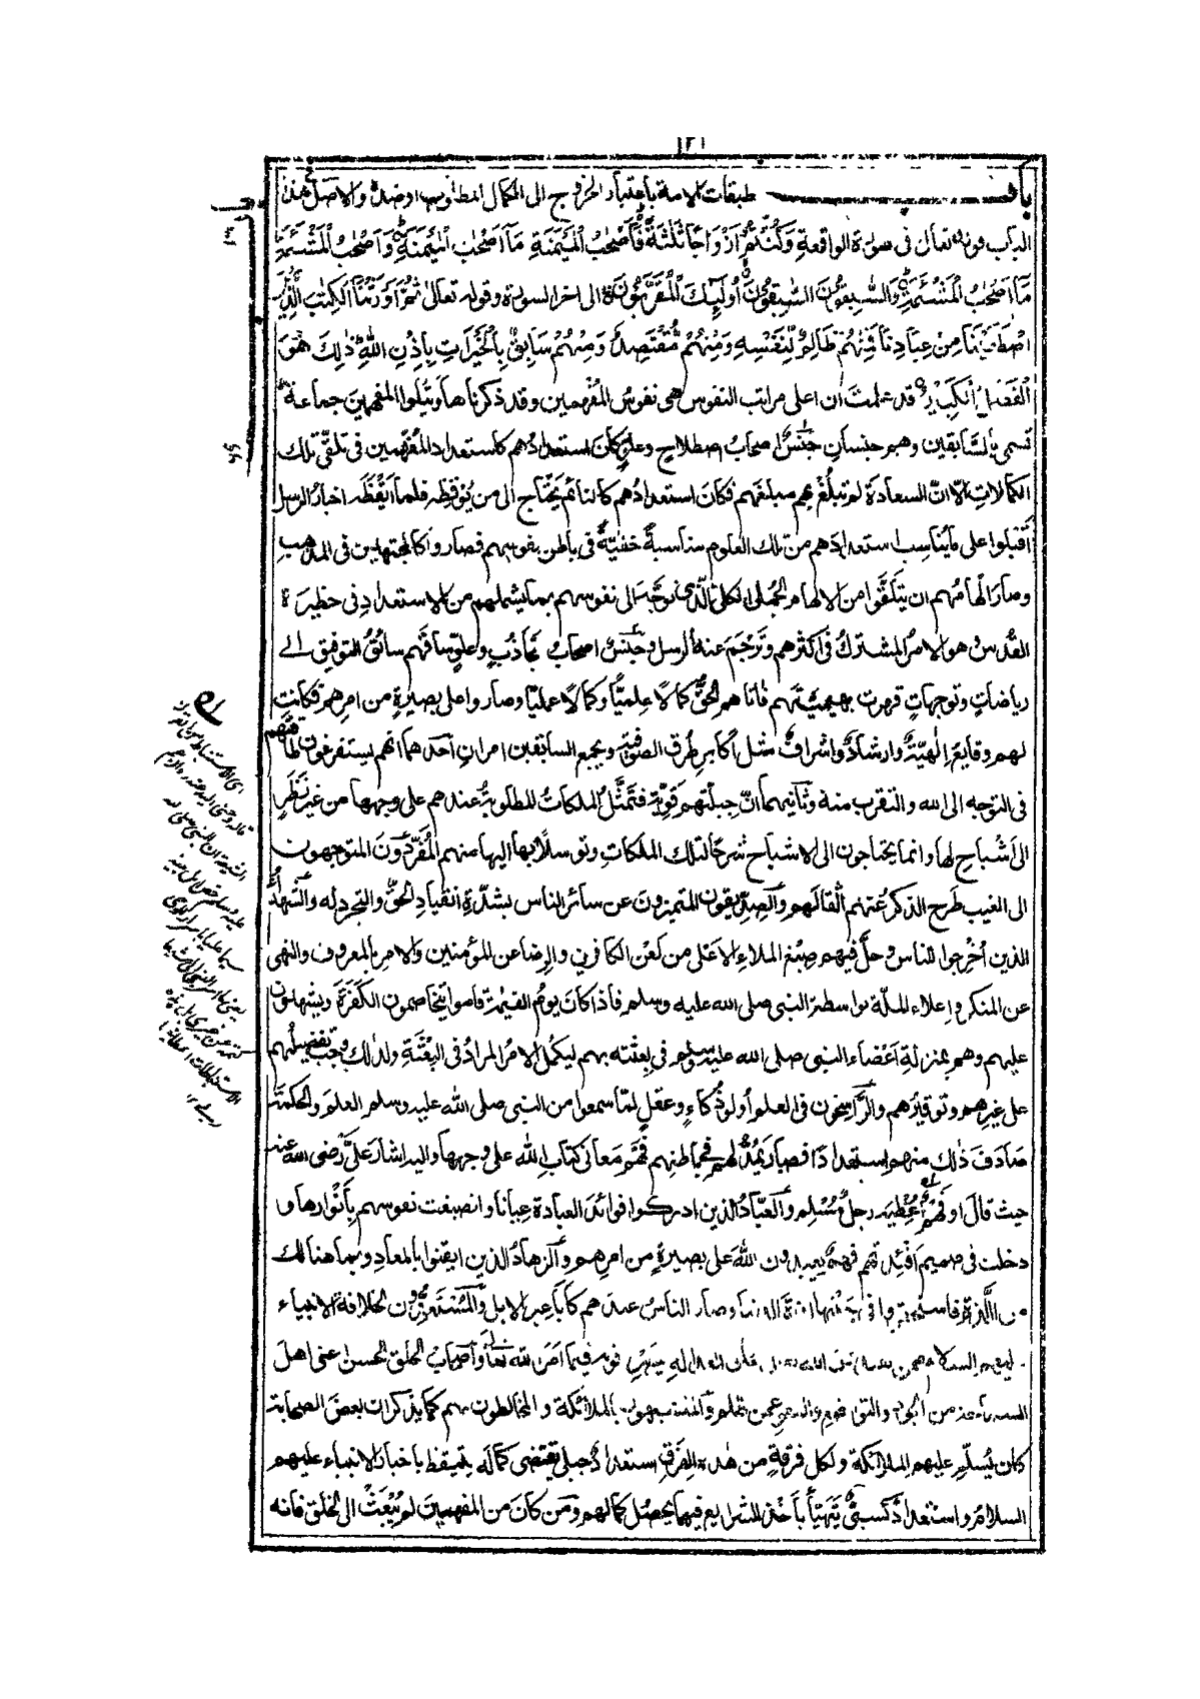 ١٢١
باب طبقات الامة باعتبار الخروج الى الكمال المطلوب او ضده والاصل فى هذا
الباب قوله تعالى فى سورة الواقعة وَكُنْتُمْ اَزْوَاجًا ثَلٰثَةً فَاَصْحٰبُ الْمَيْمَنَةِ مَآ اَصْحٰبُ الْمَيْمَنَةِ وَاَصْحٰبُ الْمَشْئَمَةِ
مَآ اَصْحٰبُ الْمَشْئَمَةِ وَالسّٰبِقُوْنَ السّٰبِقُوْنَ اُولٰٓئِكَ الْمُقَرَّبُوْنَ الى اخر السورة وقوله تعالى ثُمَّ اَوْرَثْنَا الْكِتٰبَ الَّذِيْنَ
اصْطَفَيْنَا مِنْ عِبَادِنَا فَمِنْهُمْ ظَالِمٌ لِّنَفْسِهٖ وَمِنْهُمْ مُّقْتَصِدٌ وَمِنْهُمْ سَابِقٌ بِالْخَيْرَاتِ بِاِذْنِ اللّٰهِ ذٰلِكَ هُوَ
الْفَضْلُ الْكَبِيْرُ قد علمت ان اعلى مراتب النفوس هى نفوس المُفَهَّمين وقد ذكرناها ويتلوا المفهمين جماعة
تسمى بالسَّابقين وهم جنسان جنسٌ اصحابُ اصطلاحٍ وعلوٍّ كان استعدادُهم كاستعداد المُفَهَّمين فى تلقّى تلك
الكمالاتِ الّا انّ السعادة لم تبلُغْ بهم مبلغهم فكان استعدادُهم كالنائم يَحْتاج الى من يُوْقظه فلما اَيْقَظَه اخبارُ الرسل
اَقْبلوا على ما يُناسِب استعدادَهم من تلك العلوم مناسبةً خفيّةً فى باطن نفوسهم فصاروا كالمجتهدين فى المذهب
وصار الهامُهم ان يتَلَقَّوا من الالهام الجُملى الكلى الّذى توجَّهَ الى نفوسهم بما يشملهم من الاستعداد فى حظيرة
القُدس هو الامرُ المشترك فى اكثرهم وتَرْجَمَ عنه الرسل وجنسٌ اصحابُ تجاذُبٍ وعلوٍّ ساقَهم سائقُ التوفيق الے
رياضاتٍ وتوجهاتٍ قهرت بهيميتهم فاتاهم الحقُّ كمالًا علميًّا وكمالًا عمليًا وصاروا على بصيرة من امرهم فكانت
لهم وقايع الٰهيّةٌ وارشادٌ واشرافٌ مثل اكابرِ طُرق الصوفيّةِ ويجمع السابقين امرانِ احدهما انهم يستفرغون طاقتهم
فى التوجه الى الله والتقرب منه وثانيهما انّ جبلّتهم قويّة فتمثَّلُ الملكاتُ المطلوبةُ عندهم على وجهها من غير نَظَرٍ
الى اَشْباحٍ لها وانما يحتاجون الى الاشباح شرحًا لتلك الملكاتِ وتوسلًا بها اليها منهم المُفَرِّدُوْنَ المتوجهون
الى الغيب طَرح الذكرُ عنهم اثقالَهم والصديقون المتميزون عن سائر الناس بشدّةِ انقيادِ الحقِّ والتجرد له والشهداءُ
الذين اُخْرِجوا للناس وحلَّ فيهم صِبْغ الملاءِ الاعلى من لَعْن الكافرين والرضا عن المؤمنين والامر بالمعروف والنهى
عن المنكر واعلاء الملّة بواسطة النبى صلى الله عليه وسلم فاذا كان يومُ القيٰمة قاموا يُخاصمون الكَفَرَةَ ويشهدون
عليهم وهم بمنزلة اَعْضاء النبى صلى الله عليه وسلم فى بِعْثته بهم ليكمل الامرُ المرادُ فى البِعْثَةِ ولذلك وجب تفضيلُهم
على غيرهم وتوقيرهم والرَّاسِخون فى العلم اُولو ذُكاءٍ وعقلٍ لمّا سمعوا من النبى صلى الله عليه وسلم العلم والحكمة
صَادَفَ ذٰلك منهم استعدادًا فصار يَمُدُّ لهم فى باطنهم فَهْمَ مَعانى كتابِ الله على وجهها واليه اشارَ علىٌّ رَضى الله عنه
حيث قال او فهمٌ اُعْطِيَه رجلٌ مُسْلِم والعُبّادُ الذين ادركوا فوائدَ العبادة عِيانًا وانصبغت نفوسهم بِاَنْوارِها و
دخلت فى صميم اَفْئِدَتهم فهم يعبدون اللهَ على بصيرةٍ من امرهم والزهادُ الذين ايقنوا بالمعادِ وبما هنالك
من اللَّذة فاستحقروا فى جنبها لذة الدنيا وصار الناسُ عندهم كأباعر الابل والمستعدون لخلافة الانبياء
عليهم السلام ممن يعبدون الله تعالى بخلق العدالة فيصرفونه فيما امر الله تعالى واصحابُ الخُلق الحسن اعنى اهل
السماحة من الجود والتواضع والعفو عمن ظلم والمتشبهون بالملائكة والمخالطون بهم كما يذكر ان بعض الصحابة
كان يُسلّم عليهم الملائكة ولكل فرقةٍ من هذه الفِرَق استعدادٌ جبلى يقتضى كماله بتيقظٍ باخبار الانبياء عليهم
السلام واستعدادٌ كسبىٌّ يتهيّأ باَخْذ الشرايع فبهما يحصُل كمالهم ومن كان من المفهمين لم يُبْعَثْ الى الخلق فانه